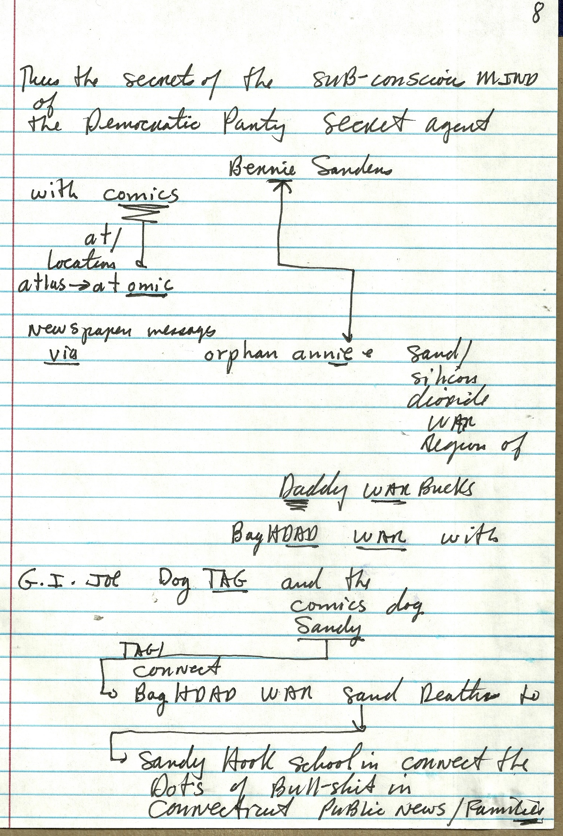 8
Thus the secrets of the sub-conscious MIND
of
the Democratic Party secret agent
Bennie Sanders
with comics
at/
location
atlas→at omic
Newspaper message
via orphan annie sand/
silicon
dioxide
WAR
Region of
Daddy WAR Bucks
BagHDAD WAR with
G.I. JOE Dog TAG and the
comics dog
Sandy
TAG/
connect
BagHDAD WAR sand Deaths to
Sandy Hook school in connect the
Dots of Bull-shit in
Connecticut Public News/Families